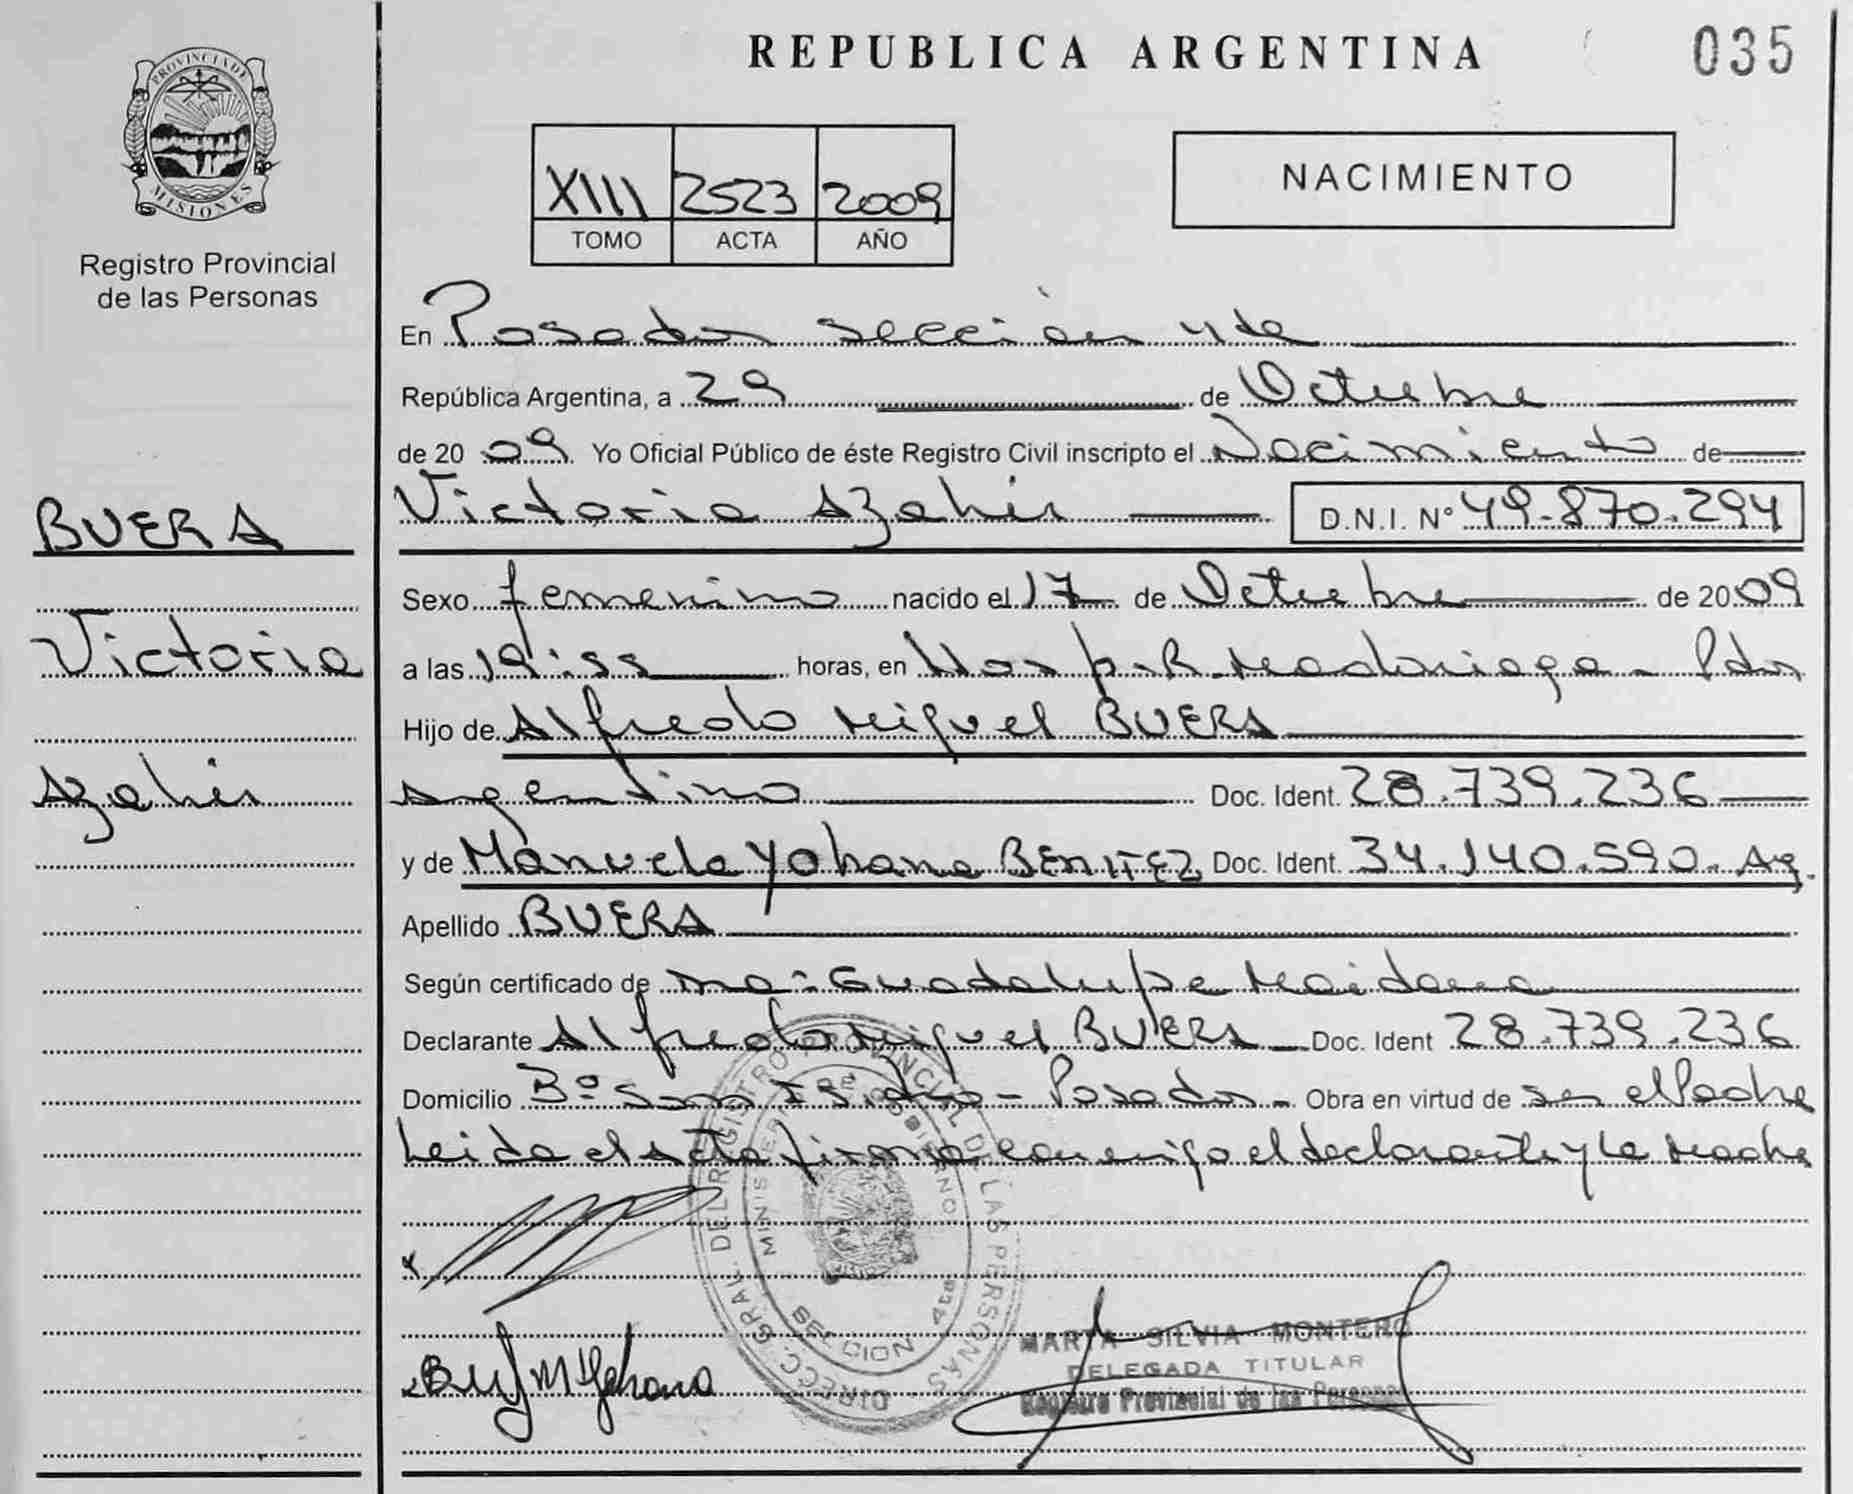 REPUBLICA ARGENTINA
035
PROVINCIA DE
MISIONES
Registro Provincial
de las Personas
XIII 2523 2009
TOMO ACTA AÑO
NACIMIENTO
En Posadas sección 4ta
República Argentina, a 29 de Octubre
de 2009 Yo Oficial Público de éste Registro Civil inscripto el Nacimiento de
Victoria Azahir D.N.I. Nº 49.870.294
BUERA
Sexo femenino nacido el 17 de Octubre de 2009
Victoria
a las 19:55 horas, en Hosp. R. Madariaga - Pdas
Hijo de Alfredo Miguel BUERA
Azahir
Argentino Doc. Ident. 28.739.236
y de Manuela Yohana BENITEZ Doc. Ident. 34.140.590. Ag.
Apellido BUERA
Según certificado de Ma. Guadalupe Maidana
Declarante Alfredo Miguel BUERA Doc. Ident 28.739.236
Domicilio Bº San Isidro - Posadas - Obra en virtud de ser el Padre
Leida el Acta firma conmigo el declarante y la Madre
DIRECC. GRAL. DEL REGISTRO PROVINCIAL DE LAS PERSONAS
MINISTERIO DE GOBIERNO
SECCION 4ta
MARTA SILVIA MONTERO
DELEGADA TITULAR
Registro Provincial de las Personas